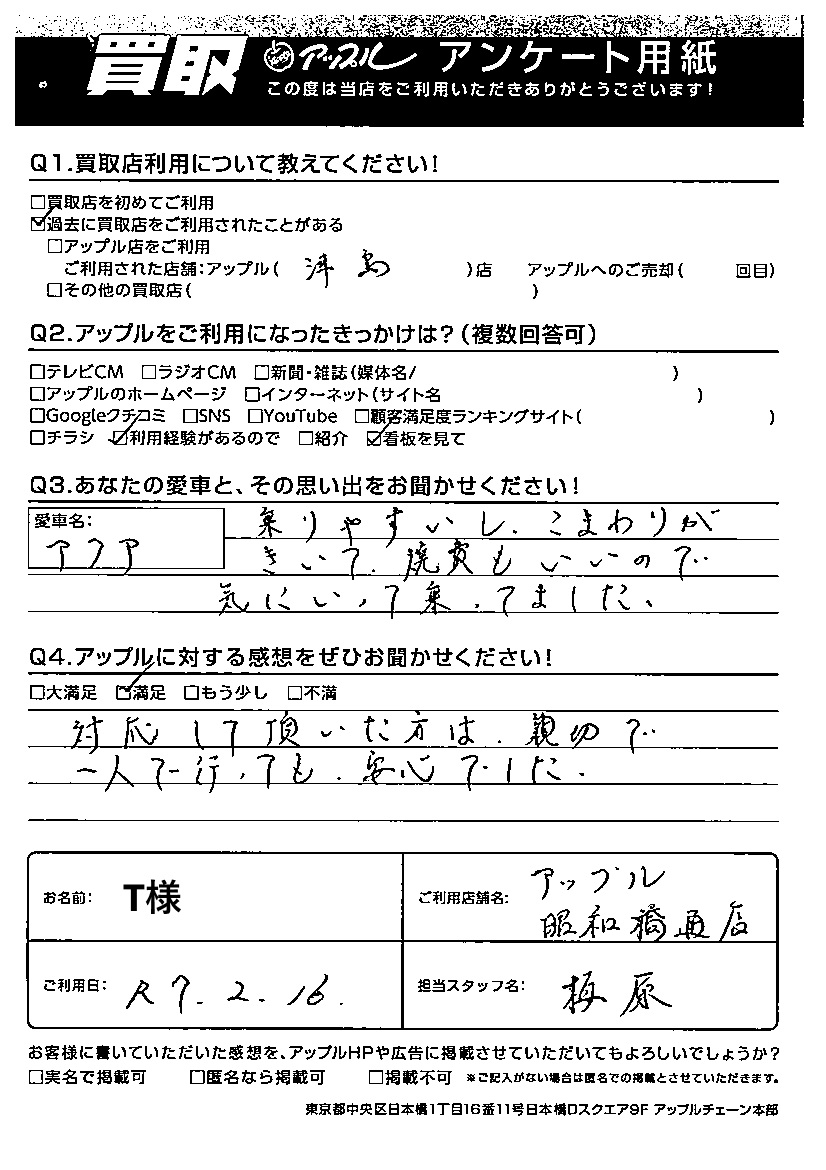 買取 アップル アンケート用紙
この度は当店をご利用いただきありがとうございます!
Q1.買取店利用について教えてください!
□買取店を初めてご利用
☑過去に買取店をご利用されたことがある
□アップル店をご利用
ご利用された店舗:アップル( 津島 )店 アップルへのご売却( 回目)
□その他の買取店( )
Q2.アップルをご利用になったきっかけは?(複数回答可)
□テレビCM □ラジオCM □新聞・雑誌(媒体名/ )
□アップルのホームページ □インターネット(サイト名 )
□Googleクチコミ □SNS □YouTube □顧客満足度ランキングサイト( )
□チラシ ☑利用経験があるので □紹介 ☑看板を見て
Q3.あなたの愛車と、その思い出をお聞かせください!
愛車名:
アクア
乗りやすいし、こまわりが
きいて、燃費もいいので
気にいって乗ってました、
Q4.アップルに対する感想をぜひお聞かせください!
□大満足 ☑満足 □もう少し □不満
対応して頂いた方は、親切で
一人で行っても、安心でした。
お名前: T様
ご利用店舗名: アップル
昭和橋通店
ご利用日: R7.2.16.
担当スタッフ名: 梅原
お客様に書いていただいた感想を、アップルHPや広告に掲載させていただいてもよろしいでしょうか?
□実名で掲載可 □匿名なら掲載可 □掲載不可 ※ご記入がない場合は匿名での掲載とさせていただきます。
東京都中央区日本橋1丁目16番11号日本橋Dスクエア9F アップルチェーン本部